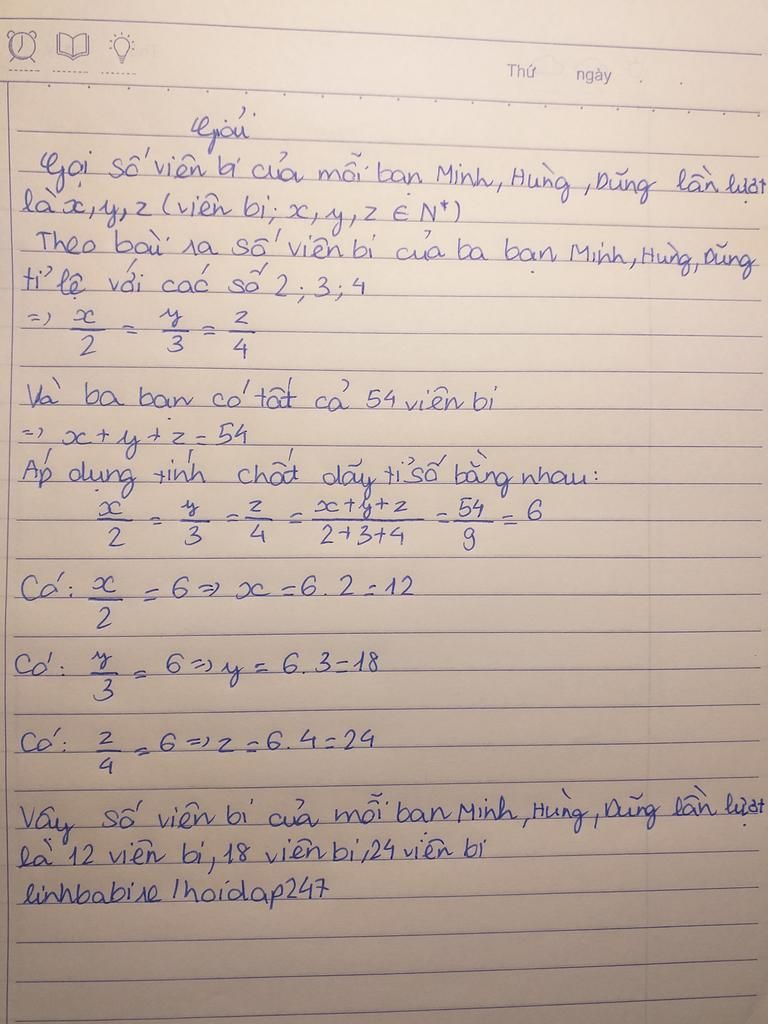 Thứ ngày
Giải
Gọi số viên bi của mỗi bạn Minh, Hùng, Dũng lần lượt
là x, y, z (viên bi; x, y, z ∈ N*)
Theo bài ra số viên bi của ba bạn Minh, Hùng, Dũng
tỉ lệ với các số 2; 3; 4
=> x/2 = y/3 = z/4
Và ba bạn có tất cả 54 viên bi
=> x + y + z = 54
Áp dụng tính chất dãy tỉ số bằng nhau:
x/2 = y/3 = z/4 = (x+y+z)/(2+3+4) = 54/9 = 6
Có: x/2 = 6 => x = 6.2 = 12
Có: y/3 = 6 => y = 6.3 = 18
Có: z/4 = 6 => z = 6.4 = 24
Vậy số viên bi của mỗi bạn Minh, Hùng, Dũng lần lượt
là 12 viên bi, 18 viên bi, 24 viên bi
linhbabie /hoidap247